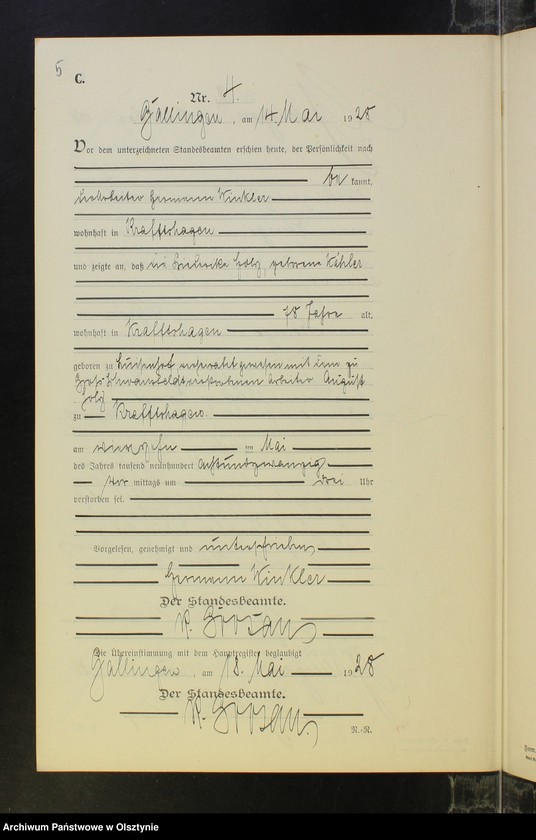 5
C.
Nr. 4.
Gallingen, am 14. Mai 1928
Vor dem unterzeichneten Standesbeamten erschien heute, der Persönlichkeit nach
be kannt,
Arbeiter Hermann Winkler
wohnhaft in Kraftshagen
und zeigte an, daß die geborene Köhler
78 Jahre alt,
wohnhaft in Kraftshagen
geboren zu verheiratet gewesen mit dem zu
Groß Schwansfeld verstorbenen Arbeiter August
zu Kraftshagen.
am im Mai
des Jahres tausend neunhundert achtundzwanzig
Vor mittags um drei Uhr
verstorben sei.
Vorgelesen, genehmigt und unterschrieben
Hermann Winkler
Der Standesbeamte.
Die Übereinstimmung mit dem Hauptregister beglaubigt
Gallingen, am 18. Mai 1928
Der Standesbeamte.
N.-R.
Archiwum Państwowe w Olsztynie